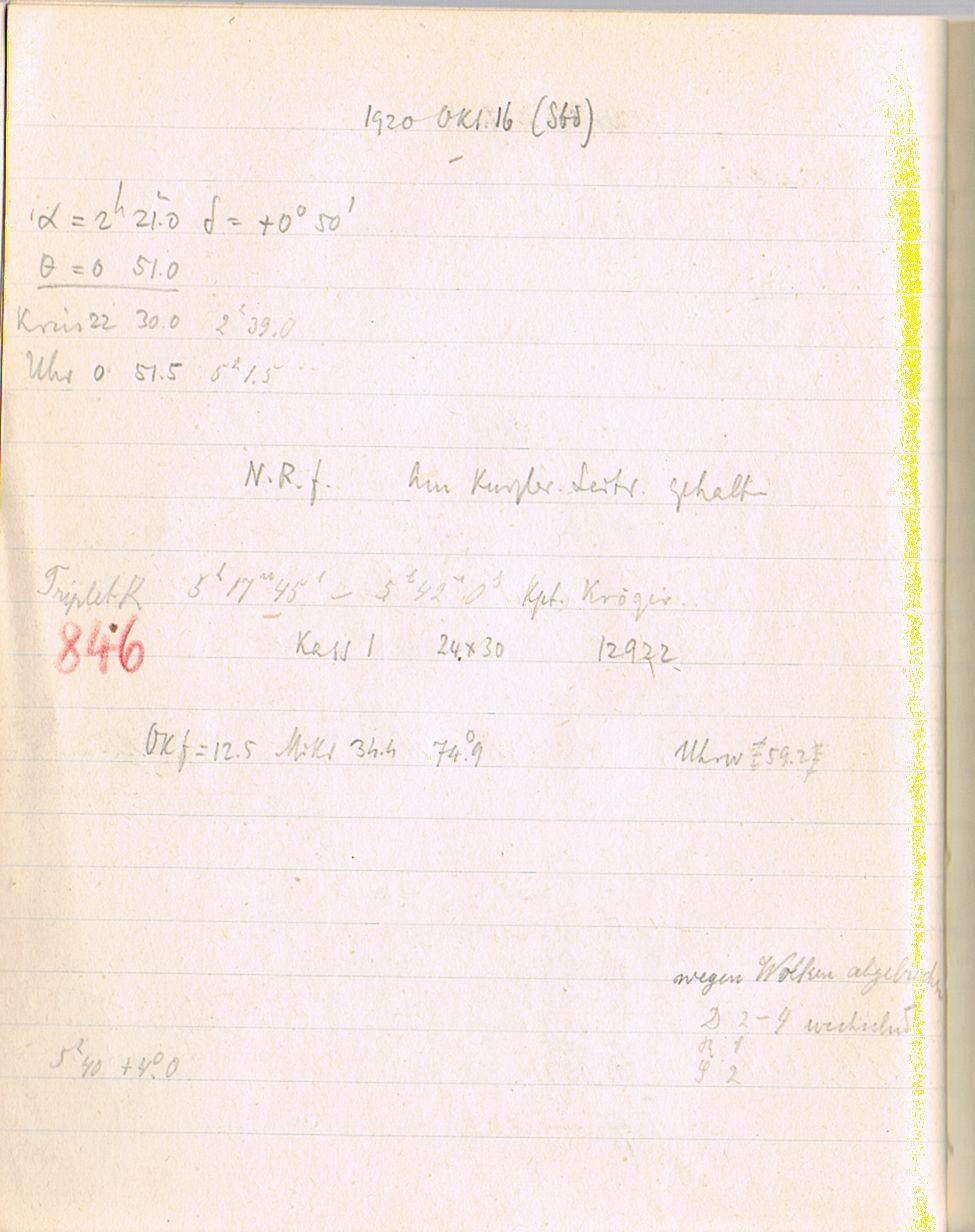 1920 Okt. 16 (Sbd)
α = 2ʰ 21.ᵐ0 δ = +0° 50'
θ = 0 51.0
Kreis 22 30.0 2ʰ 39.0
Uhr 0 51.5 5ʰ 1.5
N.R.f. Am gehalten
Triplet R 5ʰ 17ᵐ 45ˢ – 5ʰ 42ᵐ 0ˢ Hpt. Kröger.
846
Kass 1 24x30 12922
OK f = 12.5 Mikr 34.4 74.°9 Uhrw ‡59.2‡
wegen Wolken abgebrochen
D 2–4 wechselnd
R 1
S 2
5ʰ40 +4.°0